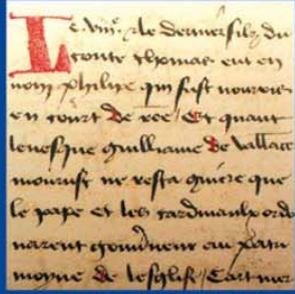 Le viiie. et le dernier filz du
conte thomas eut en
nom philipe qui fust nourrir
en court de / Et quant
levesque guilliaume de vallãce
mourust ne resta guiere que
le pape et les cardinaulx ordo
narent gouverneur au patri
moyne de lesglise / Car mer